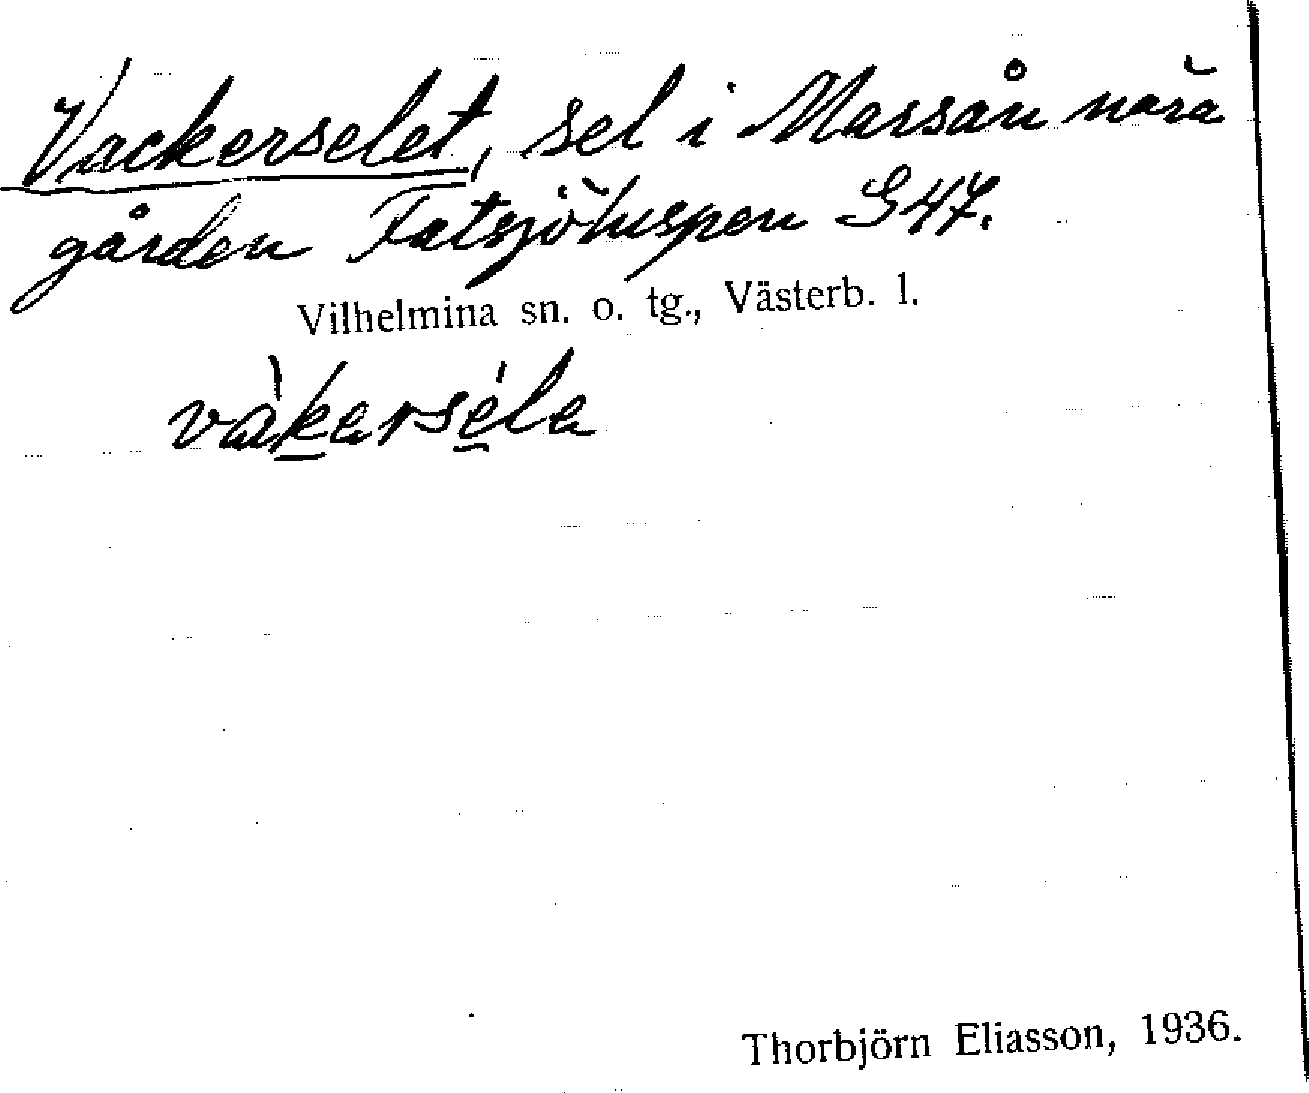 Vackerselet, sel i Marsån nära
gården Fatsjöluspen S47.
Vilhelmina sn. o. tg., Västerb. l.
vàkerséla
Thorbjörn Eliasson, 1936.